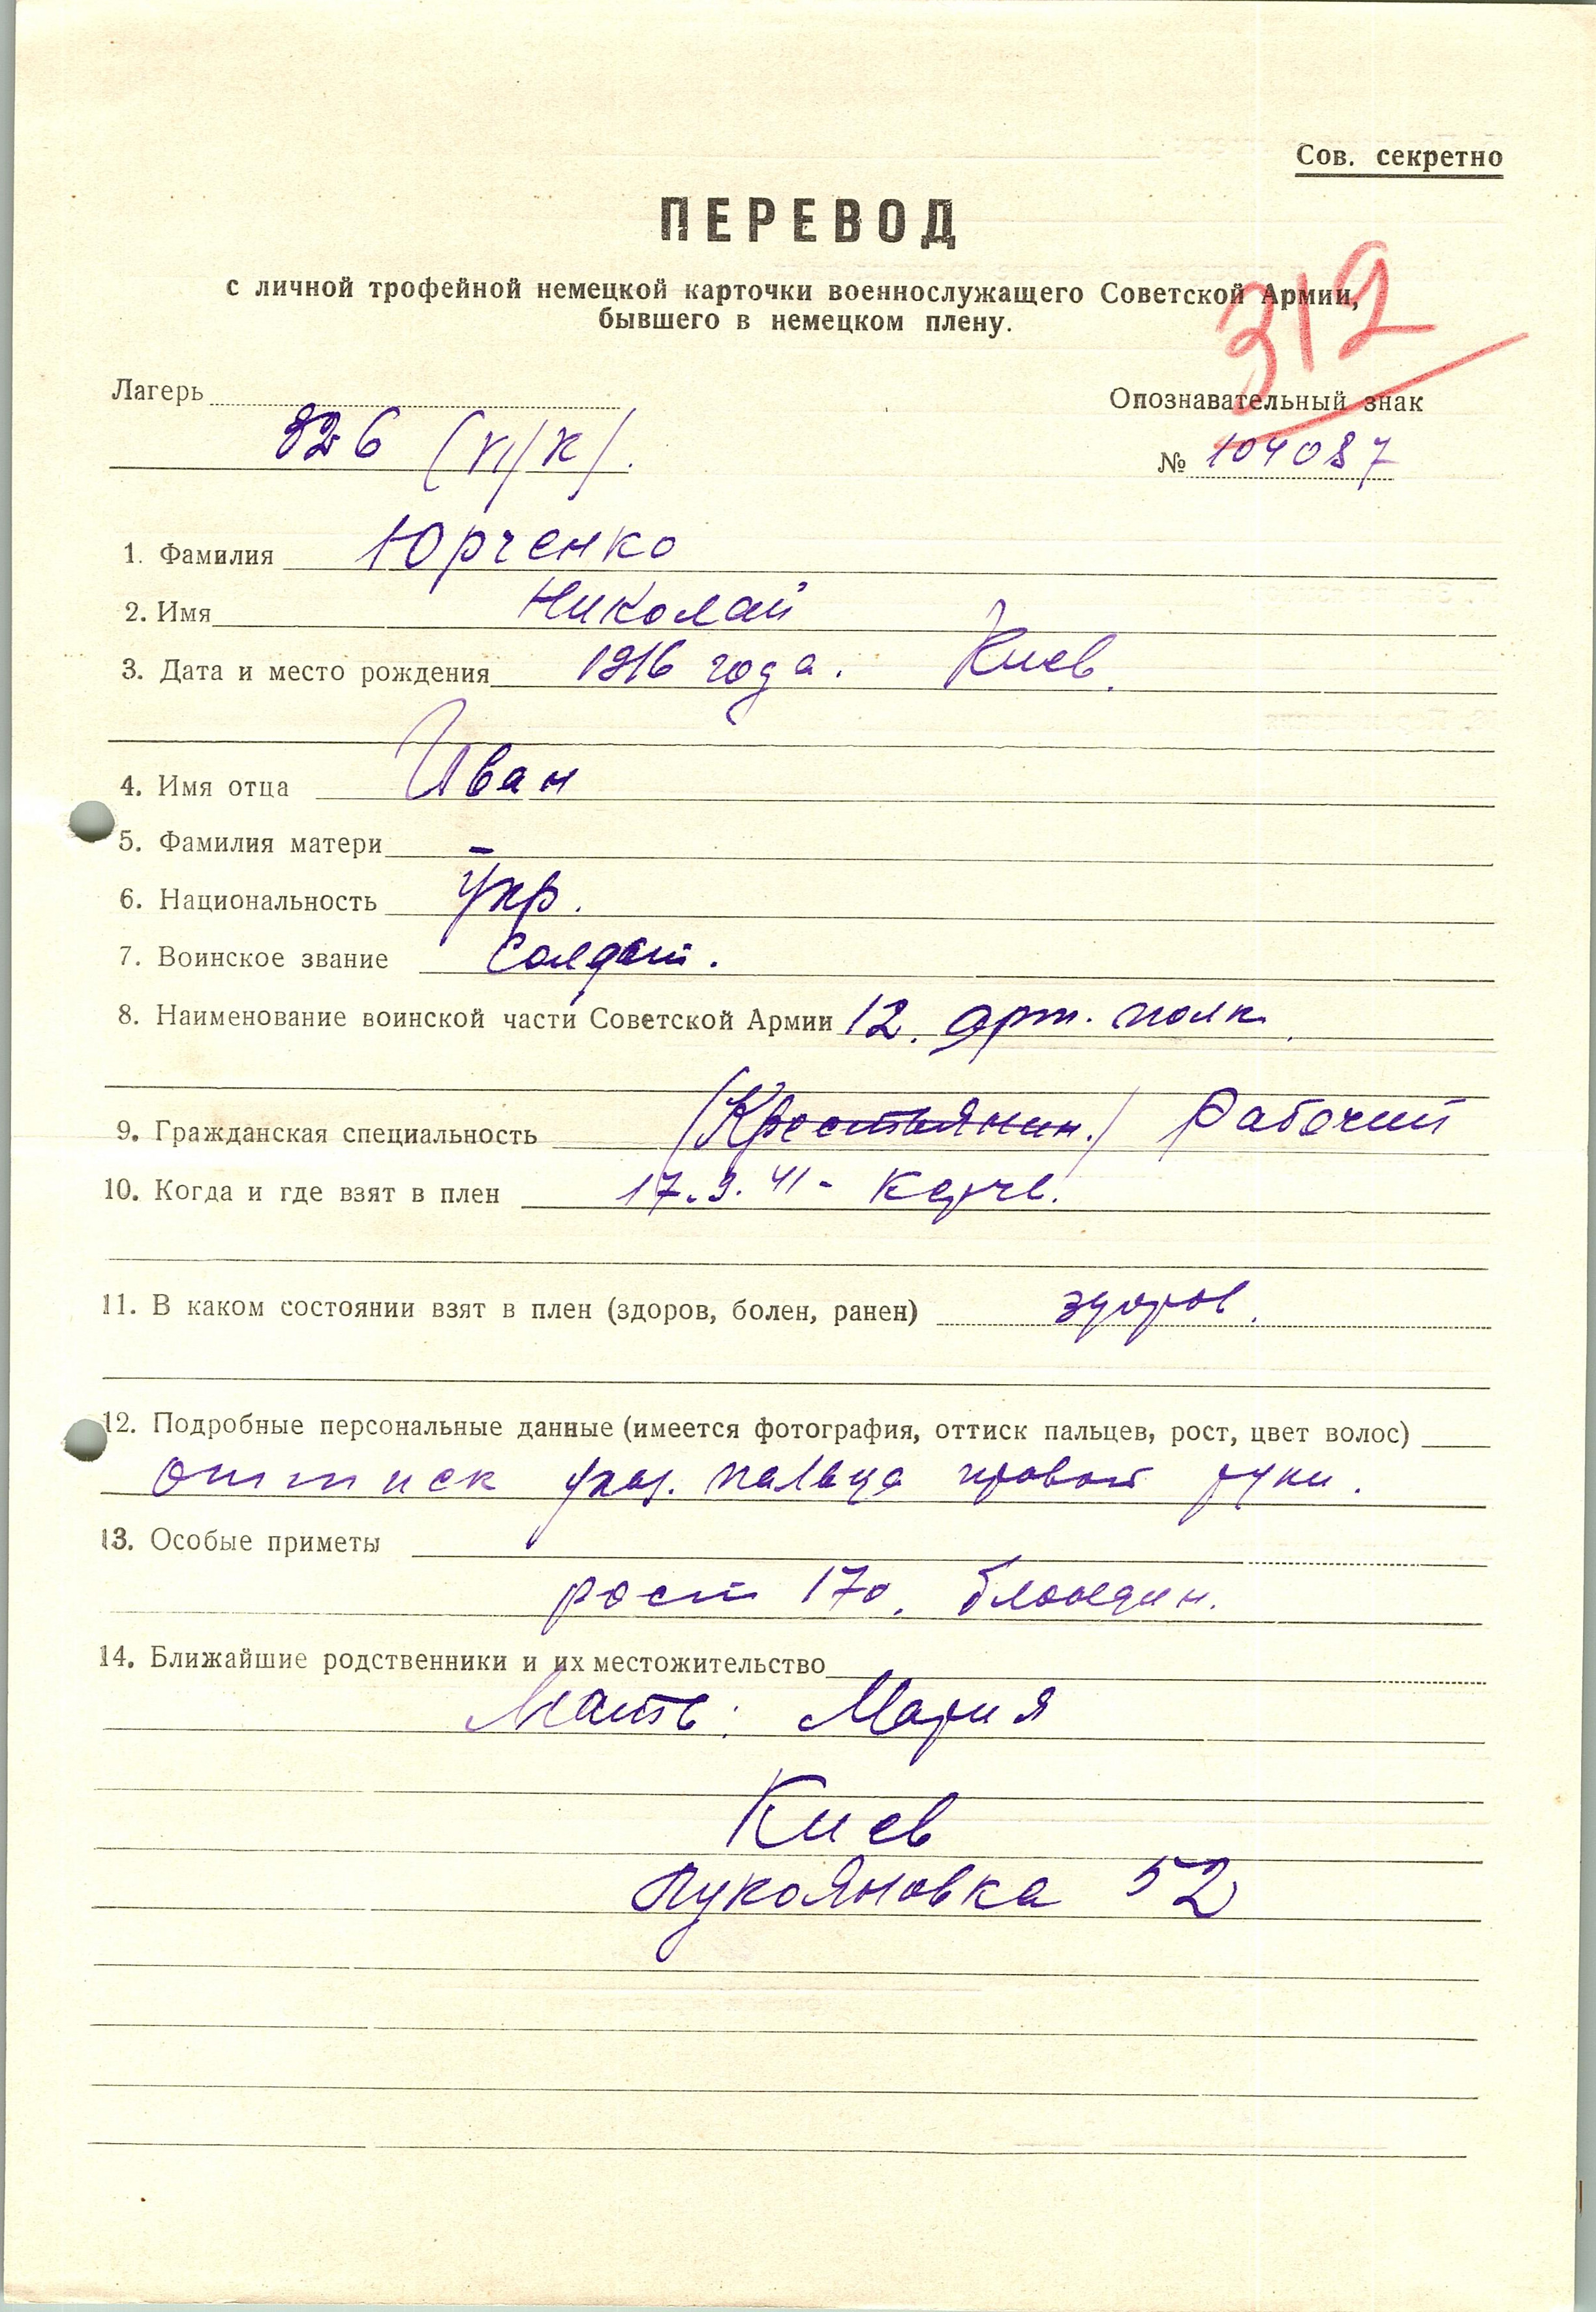 Сов. секретно
ПЕРЕВОД
с личной трофейной немецкой карточки военнослужащего Советской Армии,
бывшего в немецком плену.
312
Лагерь
Опознавательный знак
326 (VI/К).
№ 104087
1. Фамилия Юрченко
2. Имя Николай
3. Дата и место рождения 1916 года. Киев.
4. Имя отца Иван
5. Фамилия матери –
6. Национальность Укр.
7. Воинское звание Солдат.
8. Наименование воинской части Советской Армии 12. Арт. полк.
9. Гражданская специальность (Крестьянин.) Рабочий
10. Когда и где взят в плен 17.9.41 - Керчь.
11. В каком состоянии взят в плен (здоров, болен, ранен) здоров.
12. Подробные персональные данные (имеется фотография, оттиск пальцев, рост, цвет волос)
Оттиск указ. пальца правой руки.
13. Особые приметы
рост 170, блондин.
14. Ближайшие родственники и их местожительство
Мать: Мария
Киев
Лукояновка 52